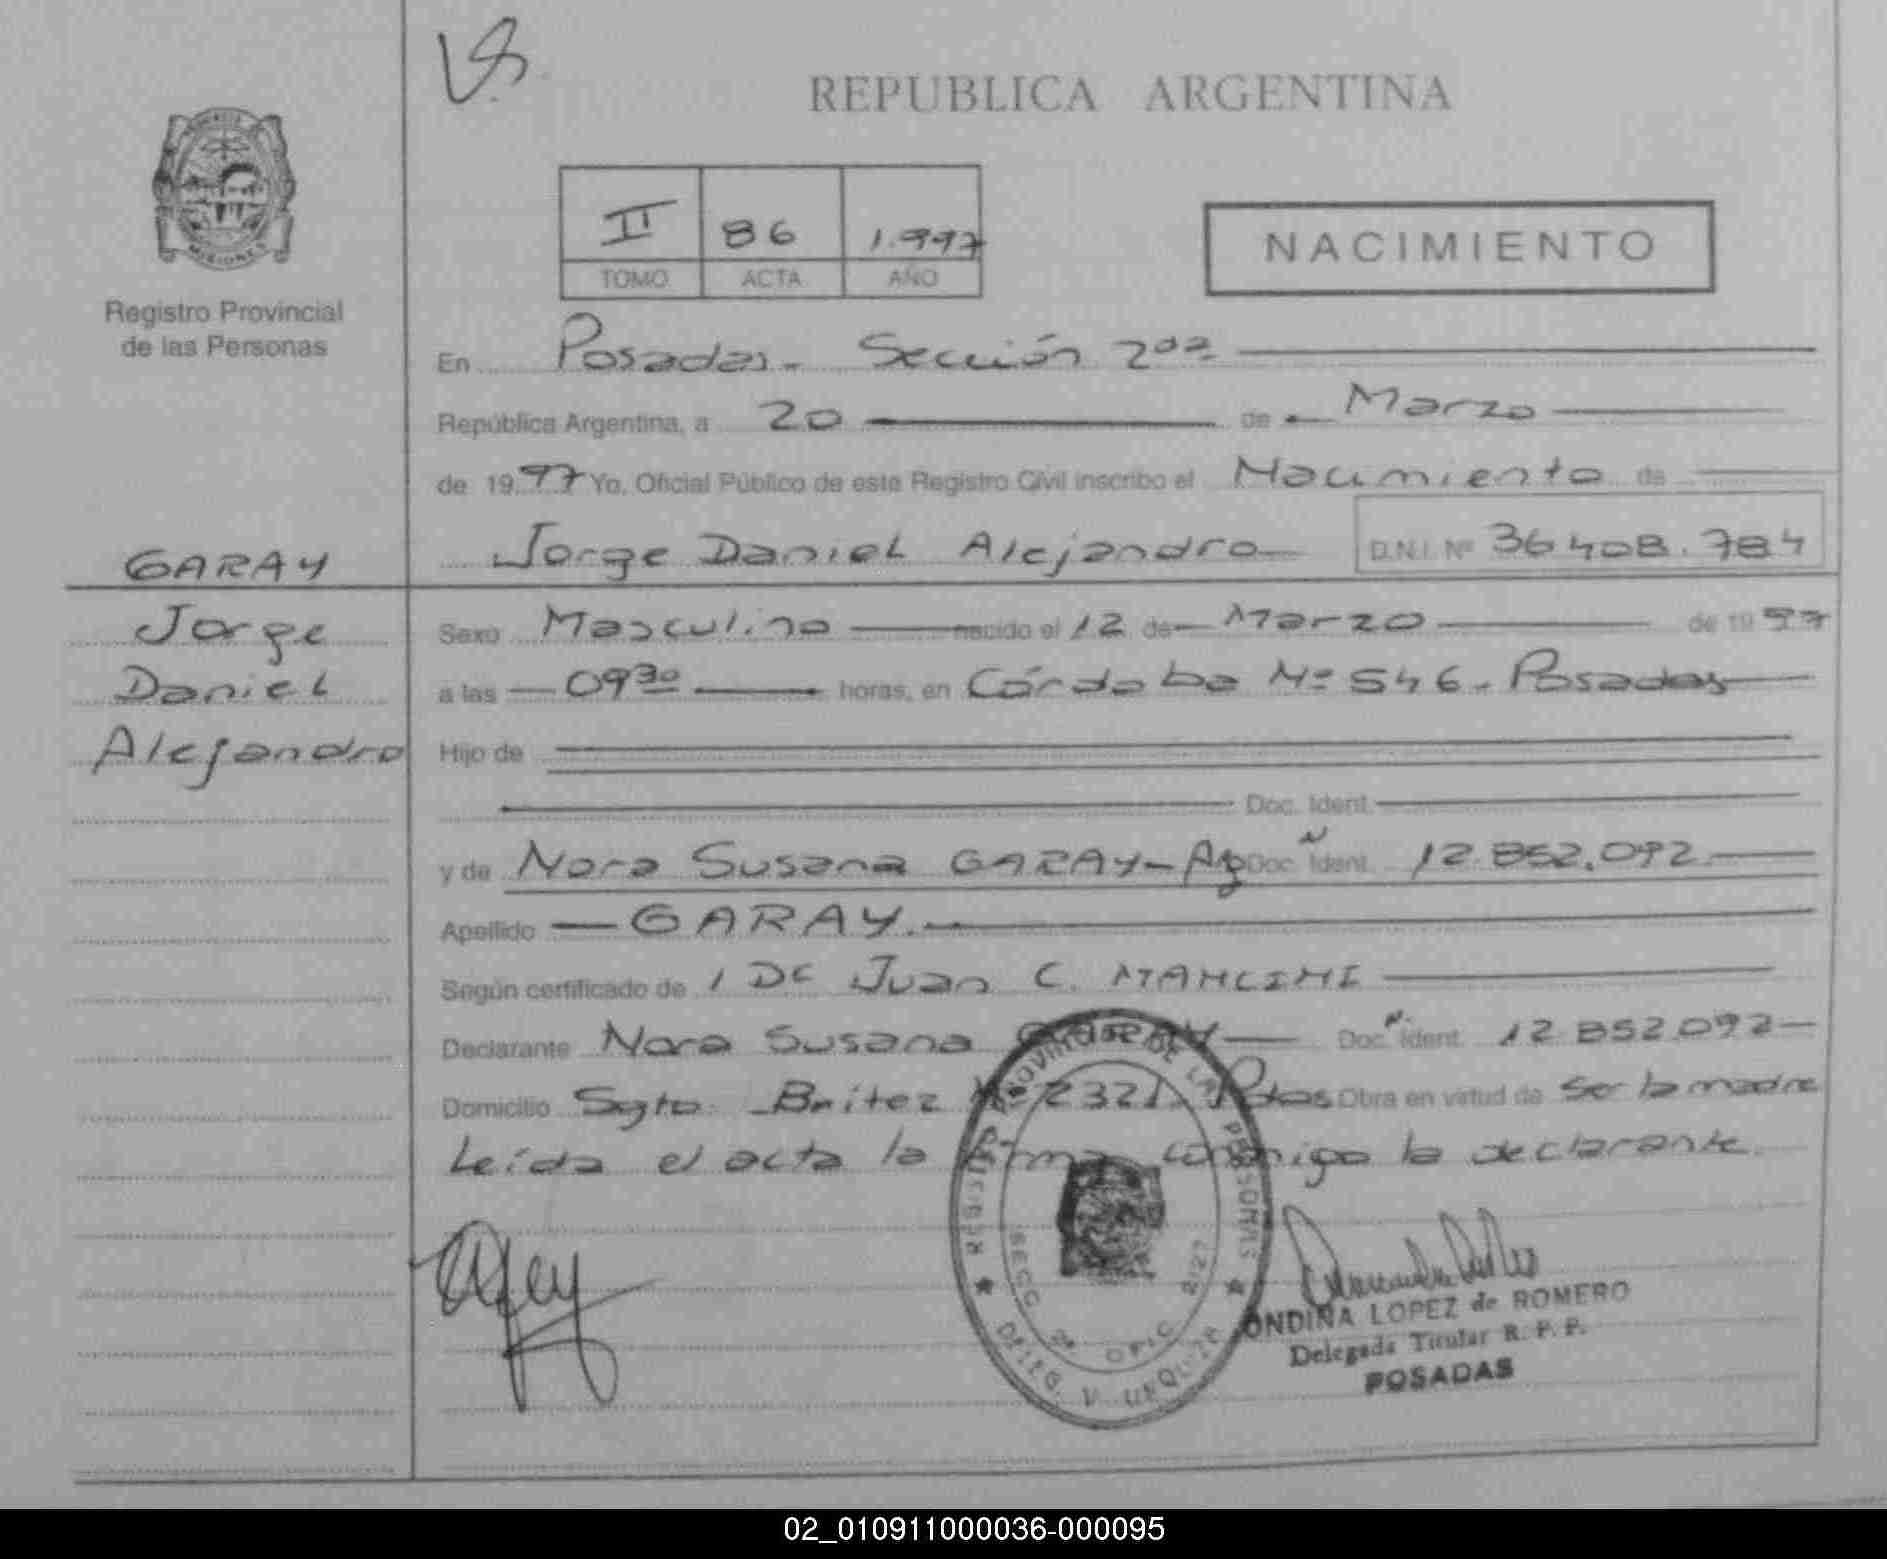 REPUBLICA ARGENTINA
MISIONES
Registro Provincial
de las Personas
II 86 1.997
TOMO ACTA AÑO
NACIMIENTO
En Posadas - Sección 2da
República Argentina, a 20 de Marzo
de 1997 Yo, Oficial Público de este Registro Civil inscribo el Nacimiento de
Jorge Daniel Alejandro D.N.I. Nº 36408.784
GARAY
Jorge
Daniel
Alejandro
Sexo Masculino nacido el 12 de Marzo de 1997
a las 09 30 horas, en Córdoba Nº 546 - Posadas
Hijo de
Doc. Ident.
y de Nora Susana GARAY - Doc. Ident. 12.852.092
Apellido GARAY.
Según certificado de Juan C.
Declarante Nora Susana GARAY Doc. Ident. 12.852.092
Domicilio Sgto. Britez Nº 2321. Pdas Obra en virtud de ser la madre
Leída el acta la firma conmigo la declarante.
REGISTRO PROVINCIAL DE LAS PERSONAS
SECC 2ª OFIC
ONDINA LOPEZ de ROMERO
Delegada Titular R. P. P.
POSADAS
02_010911000036-000095